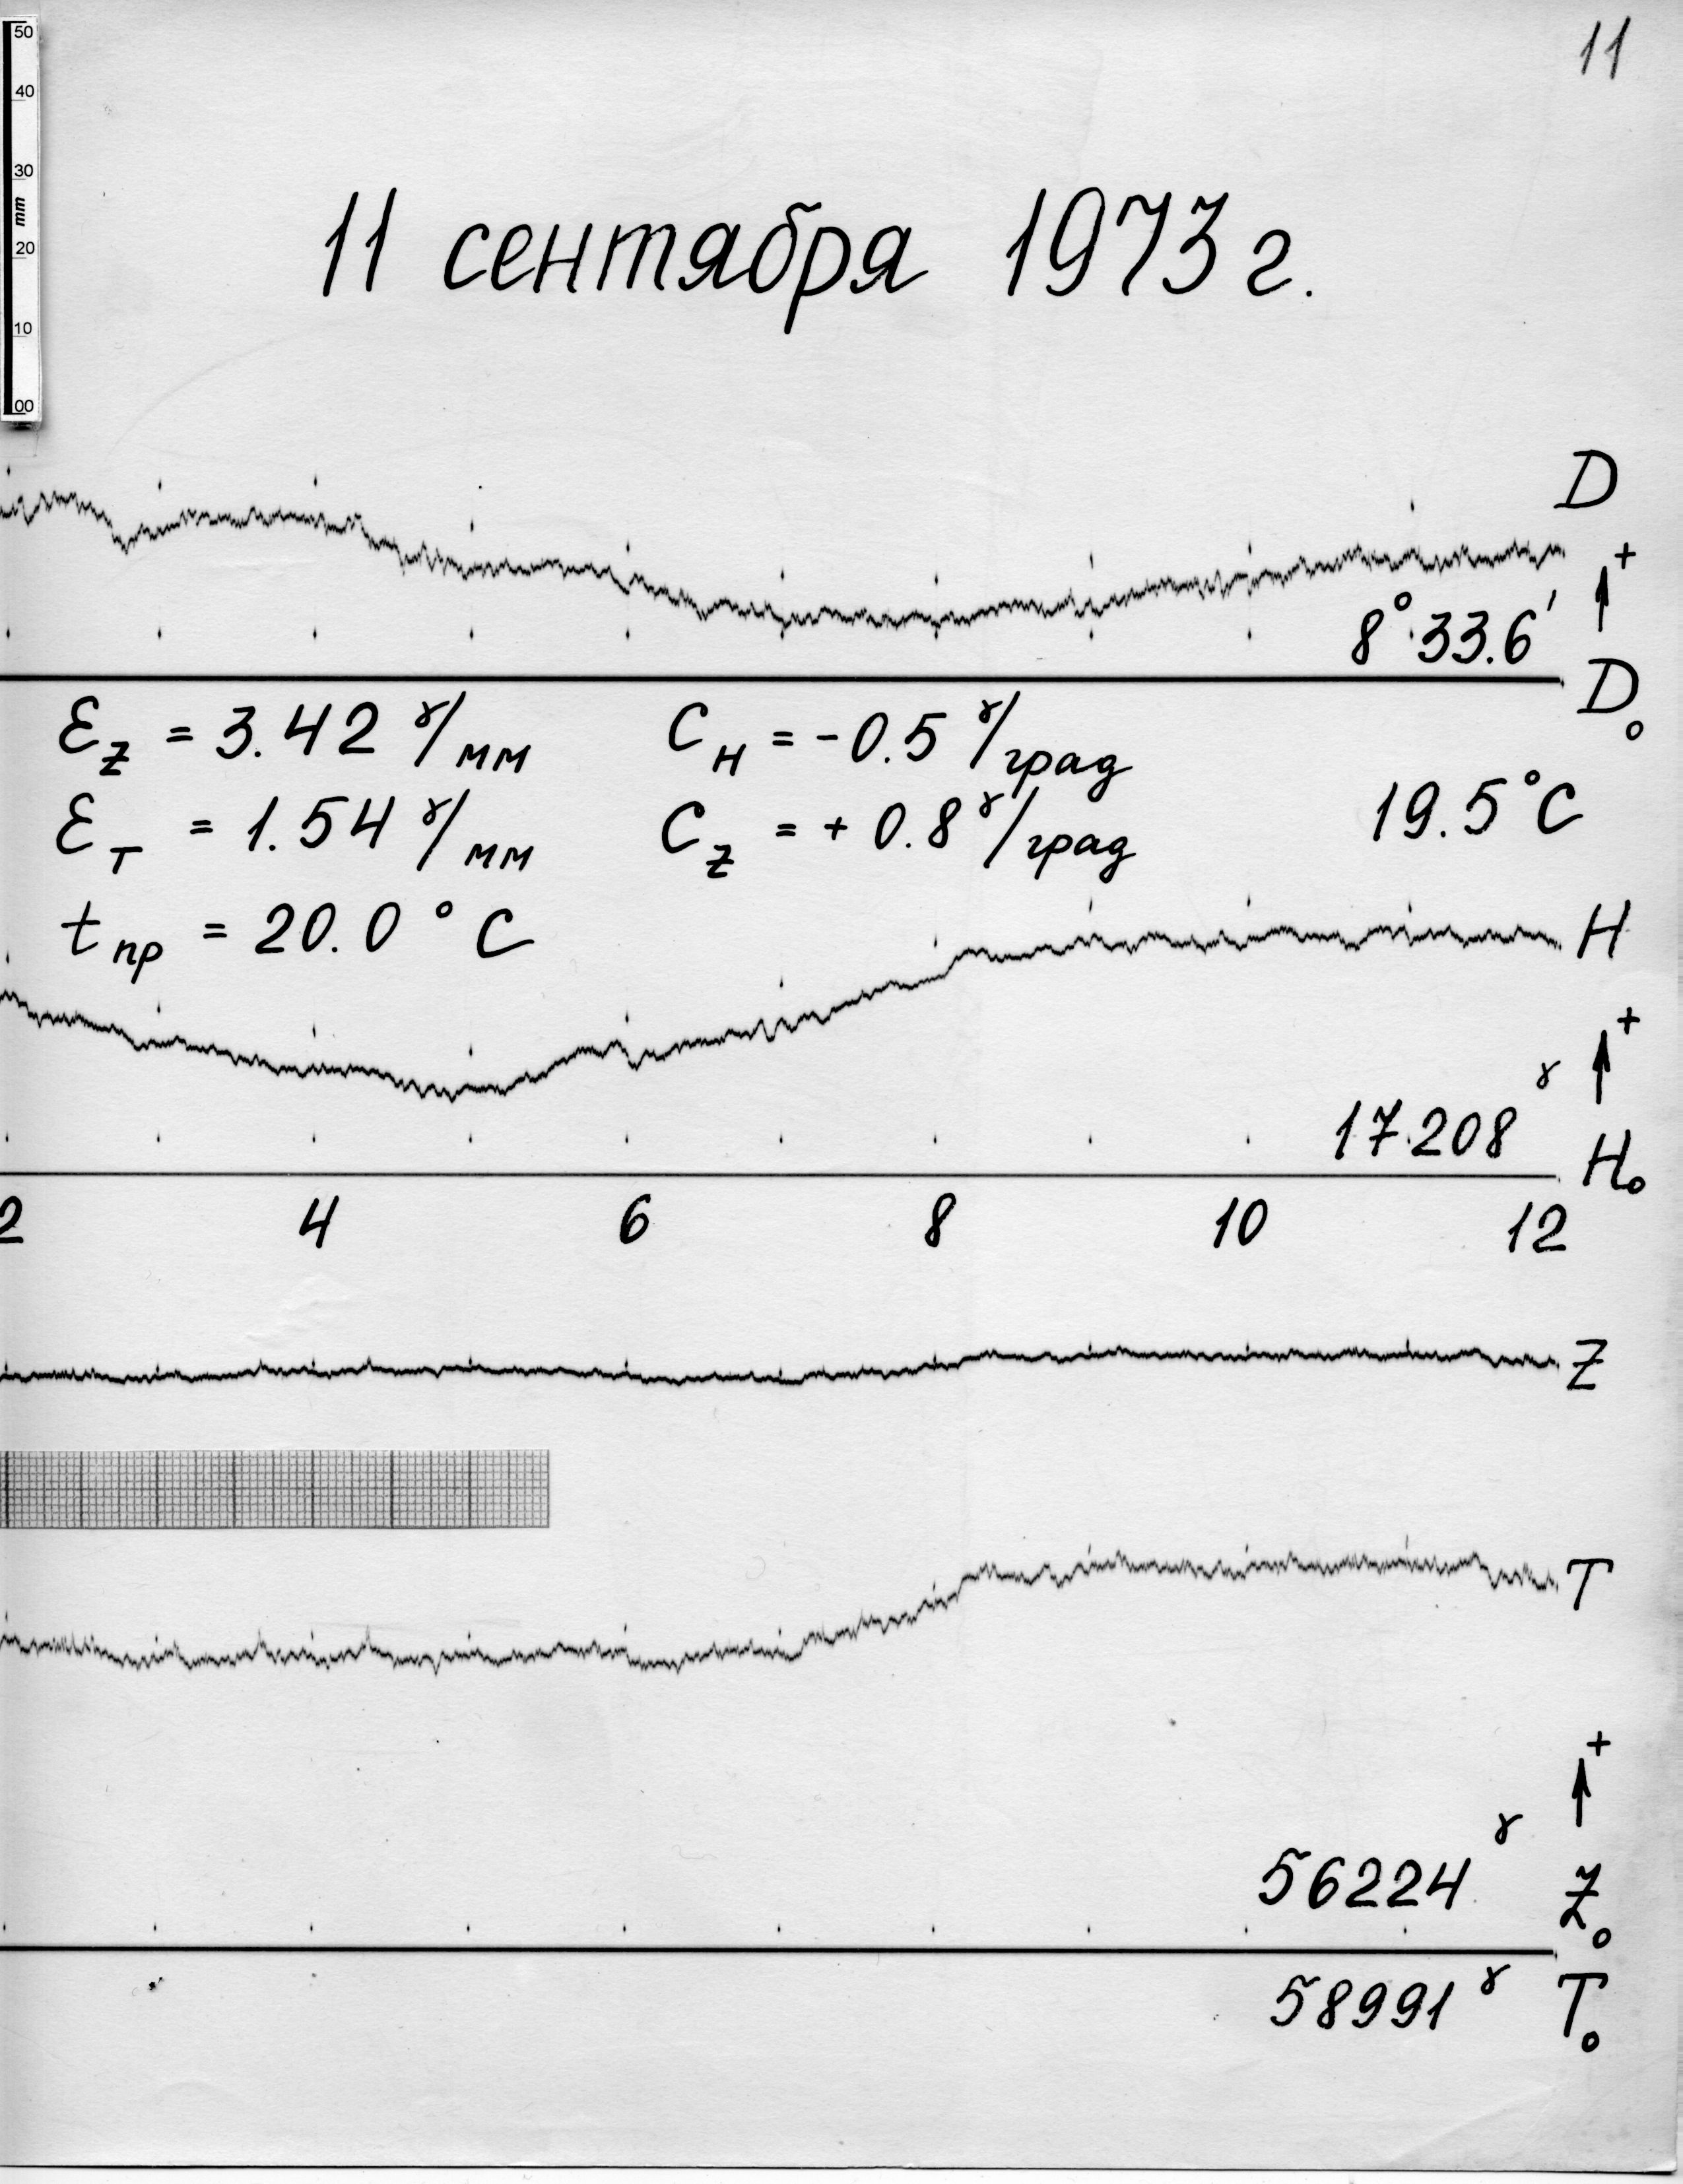 11
50
40
30
mm
20
10
00
11 сентября 1973 г.
D
+
8° 33.6′
D₀
ε_z = 3.42 γ/мм C_H = -0.5 γ/град
ε_T = 1.54 γ/мм C_z = +0.8 γ/град 19.5°C
t_пр = 20.0 °C
H
+
17208 γ
H₀
2 4 6 8 10 12
Z
T
+
56224 γ Z₀
58991 γ T₀